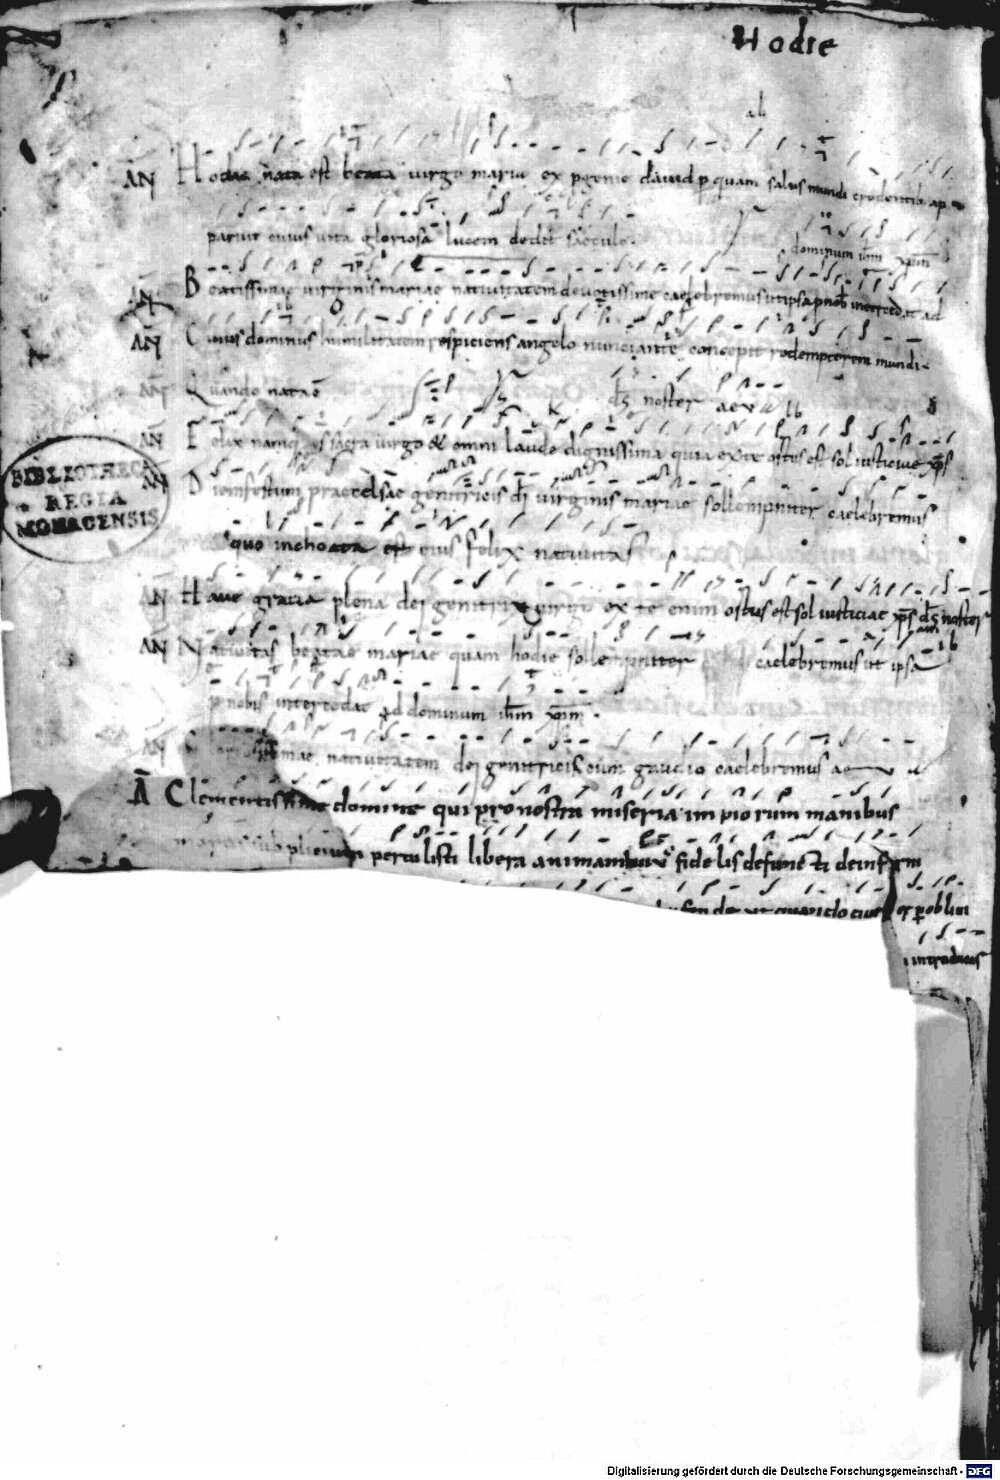 Hodie
AN Hodie nata est beata uirgo maria ex pgenie dauid p quam salus mundi credentib; ap
paruit cuius uita gloriosa lucem dedit saeculo.
dominum ihm xpm
AN Beatissimae uirginis mariae natiuitatem deuotissime caelebremus ut ipsa p nob intercedat ad
AN Cuius dominus humilitatem respiciens angelo nunciante concepit redemptorem mundi.
AN Quando nata e ds noster aeuia
AN Felix namq; es sacra uirgo & omni laude dignissima quia ex te ortus est sol iusticiae xps
AN Diem festum praecelsae genitricis di uirginis mariae sollempniter caelebremus
quo inchoata est eius felix natiuitas
AN Haue gracia plena dei genitrix uirgo ex te enim ortus est sol iusticiae xps ds noster
AN Natiuitas beatae mariae quam hodie sollempniter caelebremus ut ipsa
p nobis intercedat ad dominum ihm xpm.
AN natiuitatem dei genitricis cum gaudio caelebremus
A Clementissime domine qui pro nostra miseria impiorum manibus
mortis supplicium pertulisti libera animam fidelis defuncti de inferni
quando cius
introducas
BIBLIOTHECA
REGIA
MONACENSIS
Digitalisierung gefördert durch die Deutsche Forschungsgemeinschaft - DFG